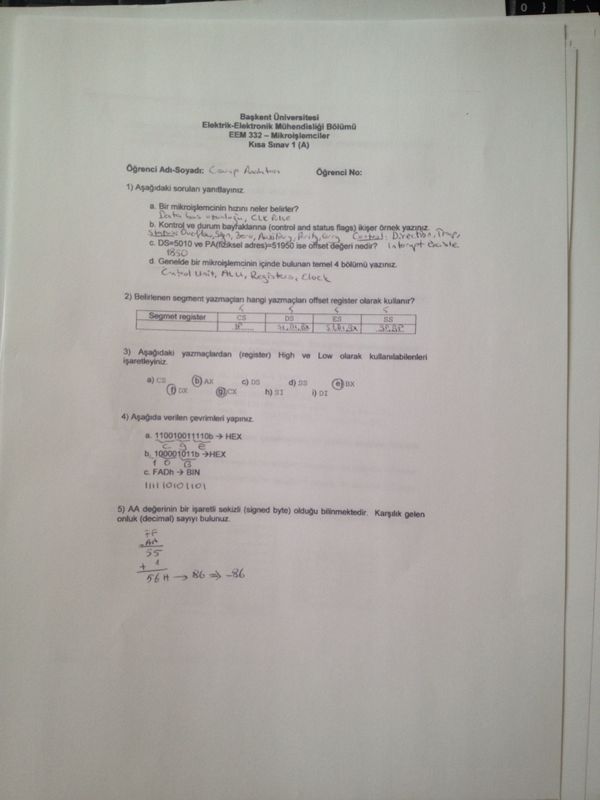 Başkent Üniversitesi
Elektrik-Elektronik Mühendisliği Bölümü
EEM 332 – Mikroişlemciler
Kısa Sınav 1 (A)
Öğrenci Adı-Soyadı: Öğrenci No:
1) Aşağıdaki soruları yanıtlayınız.
a. Bir mikroişlemcinin hızını neler belirler?
Data bus uzunluğu, CLK Pulse
b. Kontrol ve durum bayraklarına (control and status flags) ikişer örnek yazınız.
Status: Overflow, Sign, Zero, Auxiliary, Parity, Carry Control: Direction, Trap,
c. DS=5010 ve PA(fiziksel adres)=51950 ise offset değeri nedir? Interrupt Enable
1850
d. Genelde bir mikroişlemcinin içinde bulunan temel 4 bölümü yazınız.
Control Unit, ALU, Registers, Clock
2) Belirlenen segment yazmaçları hangi yazmaçları offset register olarak kullanır?
5 5 5 5
Segmet register CS DS ES SS
IP SI, DI, BX SI, DI, BX SP, BP
3) Aşağıdaki yazmaçlardan (register) High ve Low olarak kullanılabilenleri
işaretleyiniz.
a) CS b) AX c) DS d) SS e) BX
f) DX g) CX h) SI i) DI
4) Aşağıda verilen çevrimleri yapınız.
a. 110010011110b → HEX
C 9 E
b. 100001011b →HEX
1 0 B
c. FADh → BIN
111110101101
5) AA değerinin bir işaretli sekizli (signed byte) olduğu bilinmektedir. Karşılık gelen
onluk (decimal) sayıyı bulunuz.
FF
- AA
55
+ 1
56H → 86 ⇒ -86